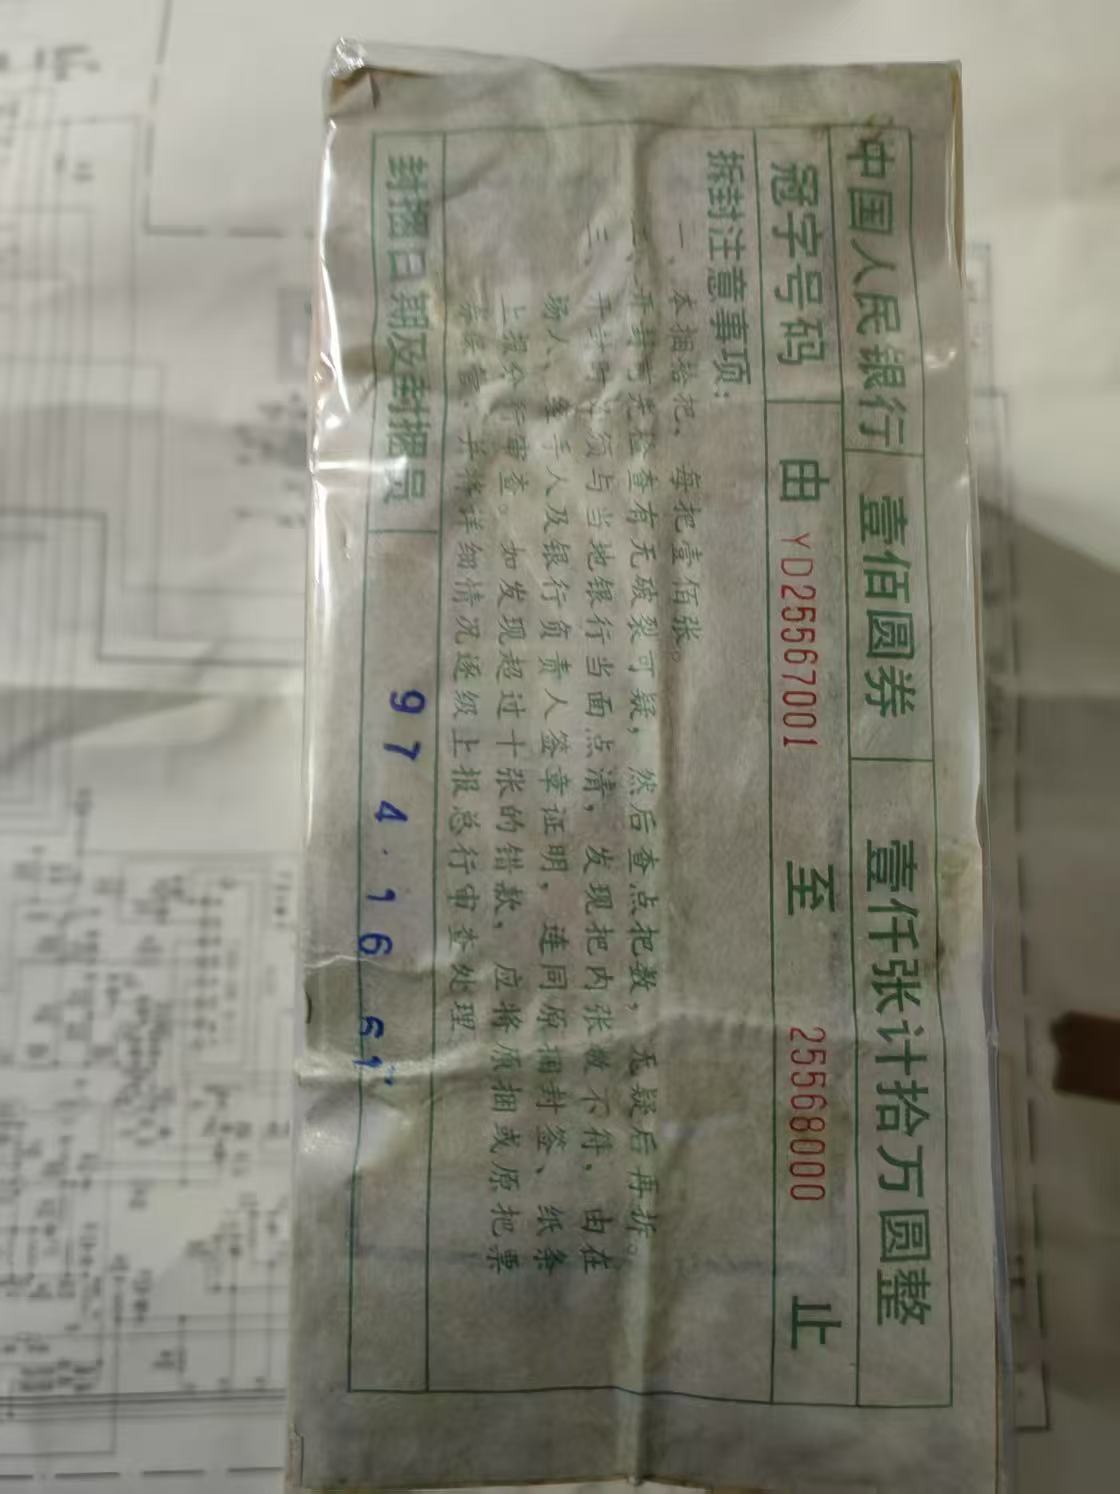 中国人民银行 壹佰圆券 壹仟张计拾万圆整
冠字号码 由 YD25567001 至 25568000 止
拆封注意事项:
一、本捆拾把,每把壹佰张。
二、开封前先检查有无破裂可疑,然后查点把数,无疑后再拆。
三、开封时必须与当地银行当面点清,发现把内张数不符,由在
场人、经手人及银行负责人签章证明,连同原捆封签、纸条
上报分行审查。如发现超过十张的错款,应将原捆或原把票
币保管,并将详细情况逐级上报总行审查处理
封捆日期及封捆员 97 4.16 61